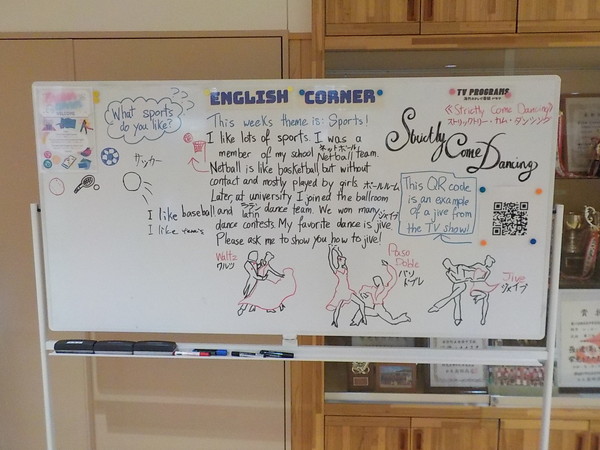 What sports
do you like?
サッカー
I like baseball
I like tennis
ENGLISH CORNER
This weeks theme is: Sports!
I like lots of sports. I was a
ネットボール
member of my school Netball team.
Netball is like basketball but without
contact and mostly played by girls.
ボールルーム
Later, at university I joined the ballroom
ラテン
and latin dance team. We won many
ジャイブ
dance contests. My favorite dance is jive.
Please ask me to show you how to jive!
Waltz
ワルツ
Paso
Doble
パソ
ドブレ
Jive
ジャイブ
TV PROGRAMS
《Strictly Come Dancing》
ストリクトリー・カム・ダンシング
Strictly
Come
Dancing
This QR code
is an example
of a jive from
the TV show!